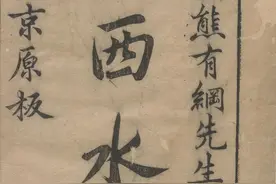 熊有綱先生
西水
京原板